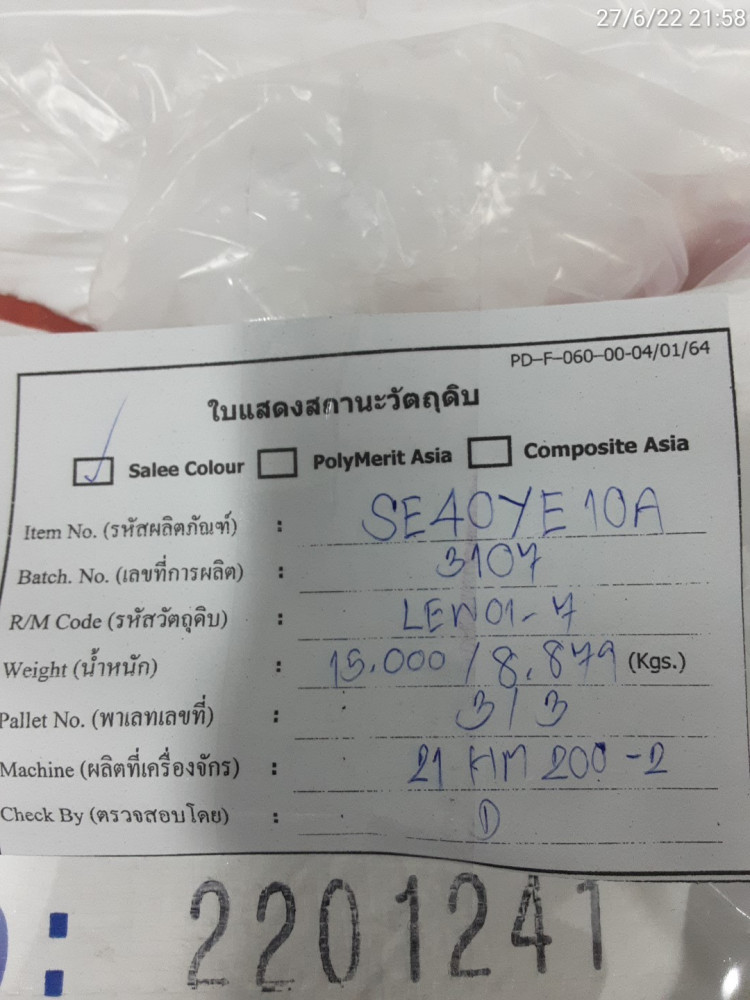 27/6/22 21:58
PD-F-060-00-04/01/64
ใบแสดงสถานะวัตถุดิบ
Salee Colour PolyMerit Asia Composite Asia
Item No. (รหัสผลิตภัณฑ์) : SE40YE10A
Batch. No. (เลขที่การผลิต) : 3107
R/M Code (รหัสวัตถุดิบ) : LEW01-7
Weight (น้ำหนัก) : 15.000 / 8.879 (Kgs.)
Pallet No. (พาเลทเลขที่) : 3/3
Machine (ผลิตที่เครื่องจักร) : 21 HM 200-2
Check By (ตรวจสอบโดย) :
: 2201241